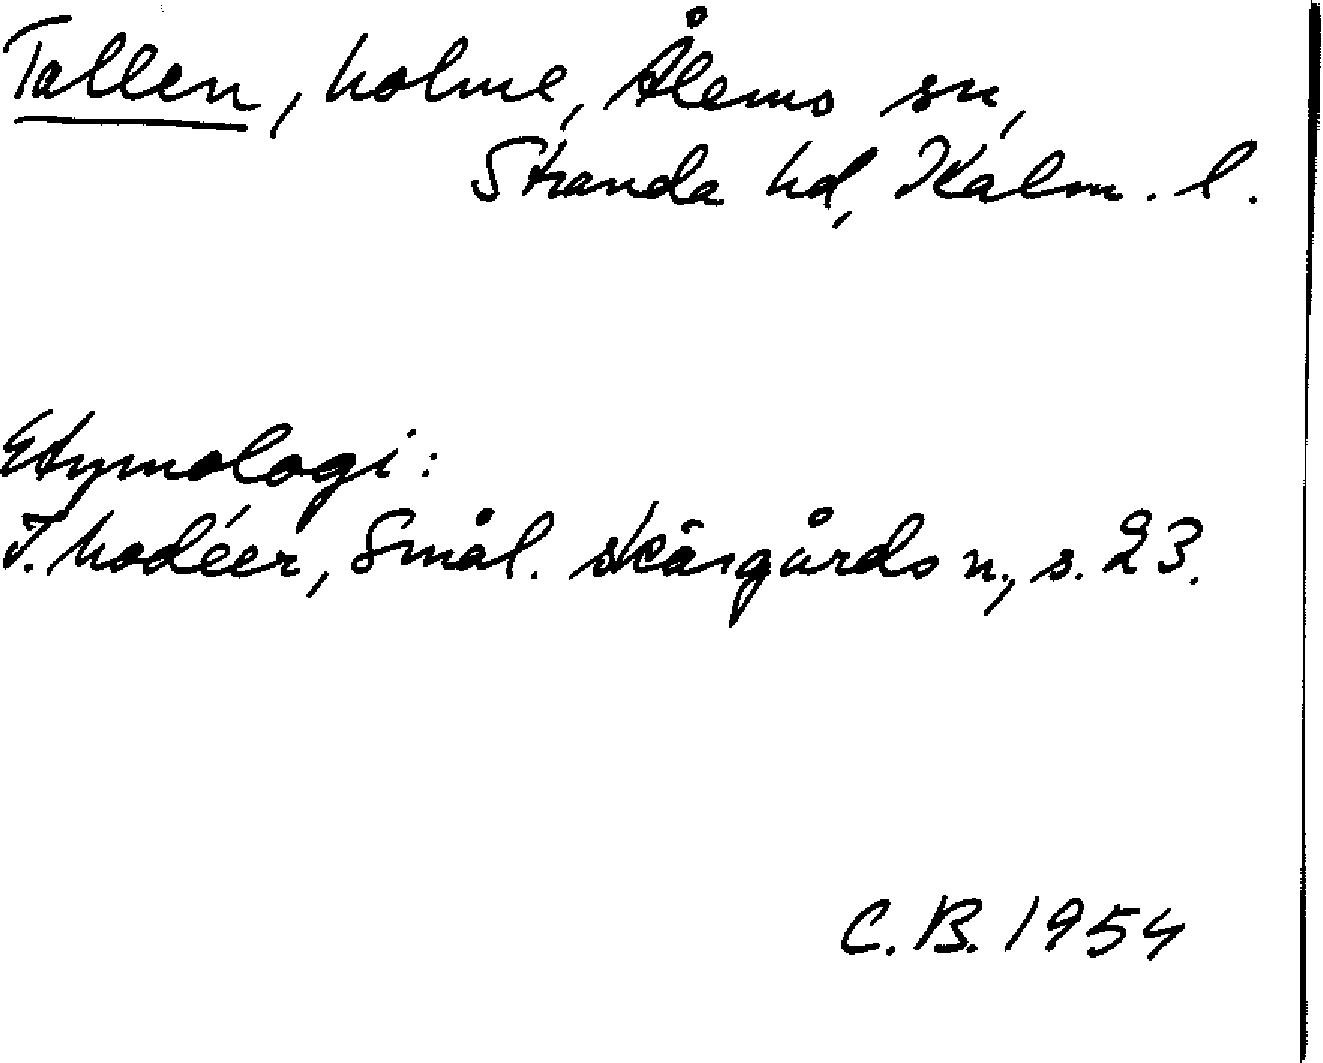 Tallen, holme, Ålems sn,
Stranda hd, Kalm. l.
Etymologi:
I. Modéer, Smål. skärgårds n., s. 23.
C. B. 1954